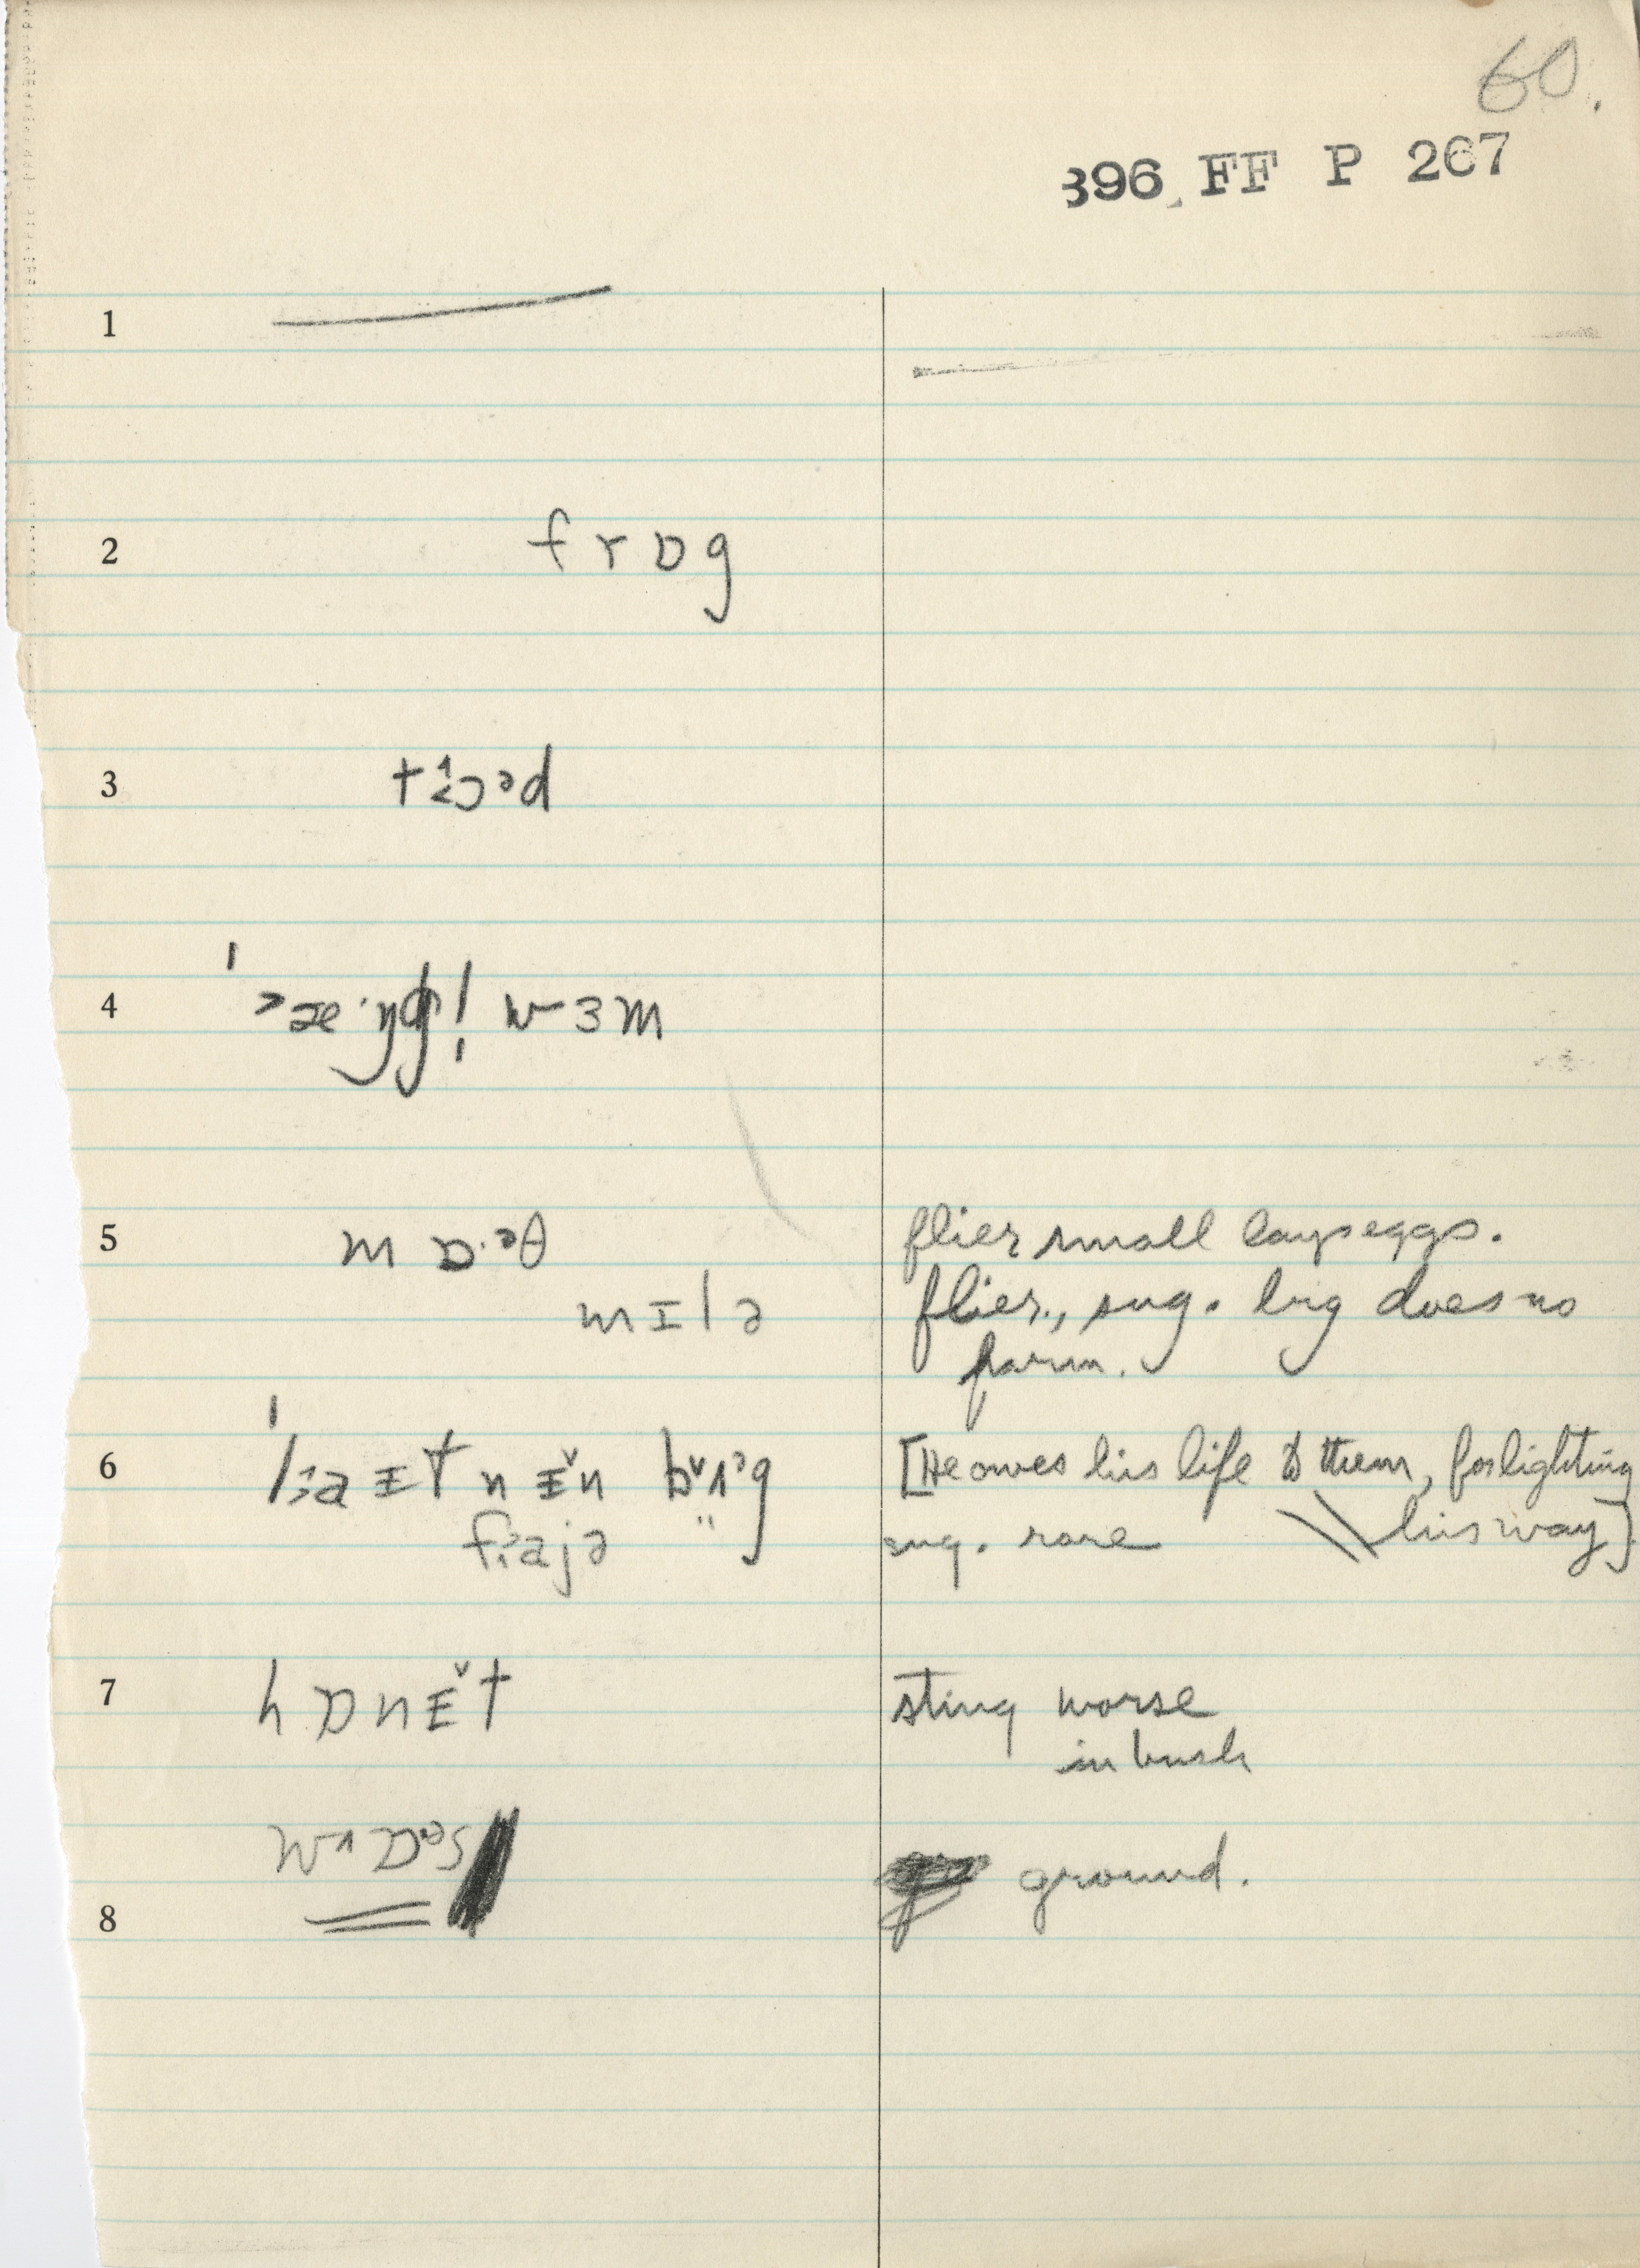 60.
396 FF P 267
1
2 frɒg
3
4 wɜm
5 mɒ·ᵊθ flier small lays eggs.
mɪlə flier, sug. big does no
harm.
6 [He owes his life to them, for lighting
his way]
faɪjə " sug. rare
7 hɒnɪ̆t sting worse
in bush
wɒᵊs ground.
8